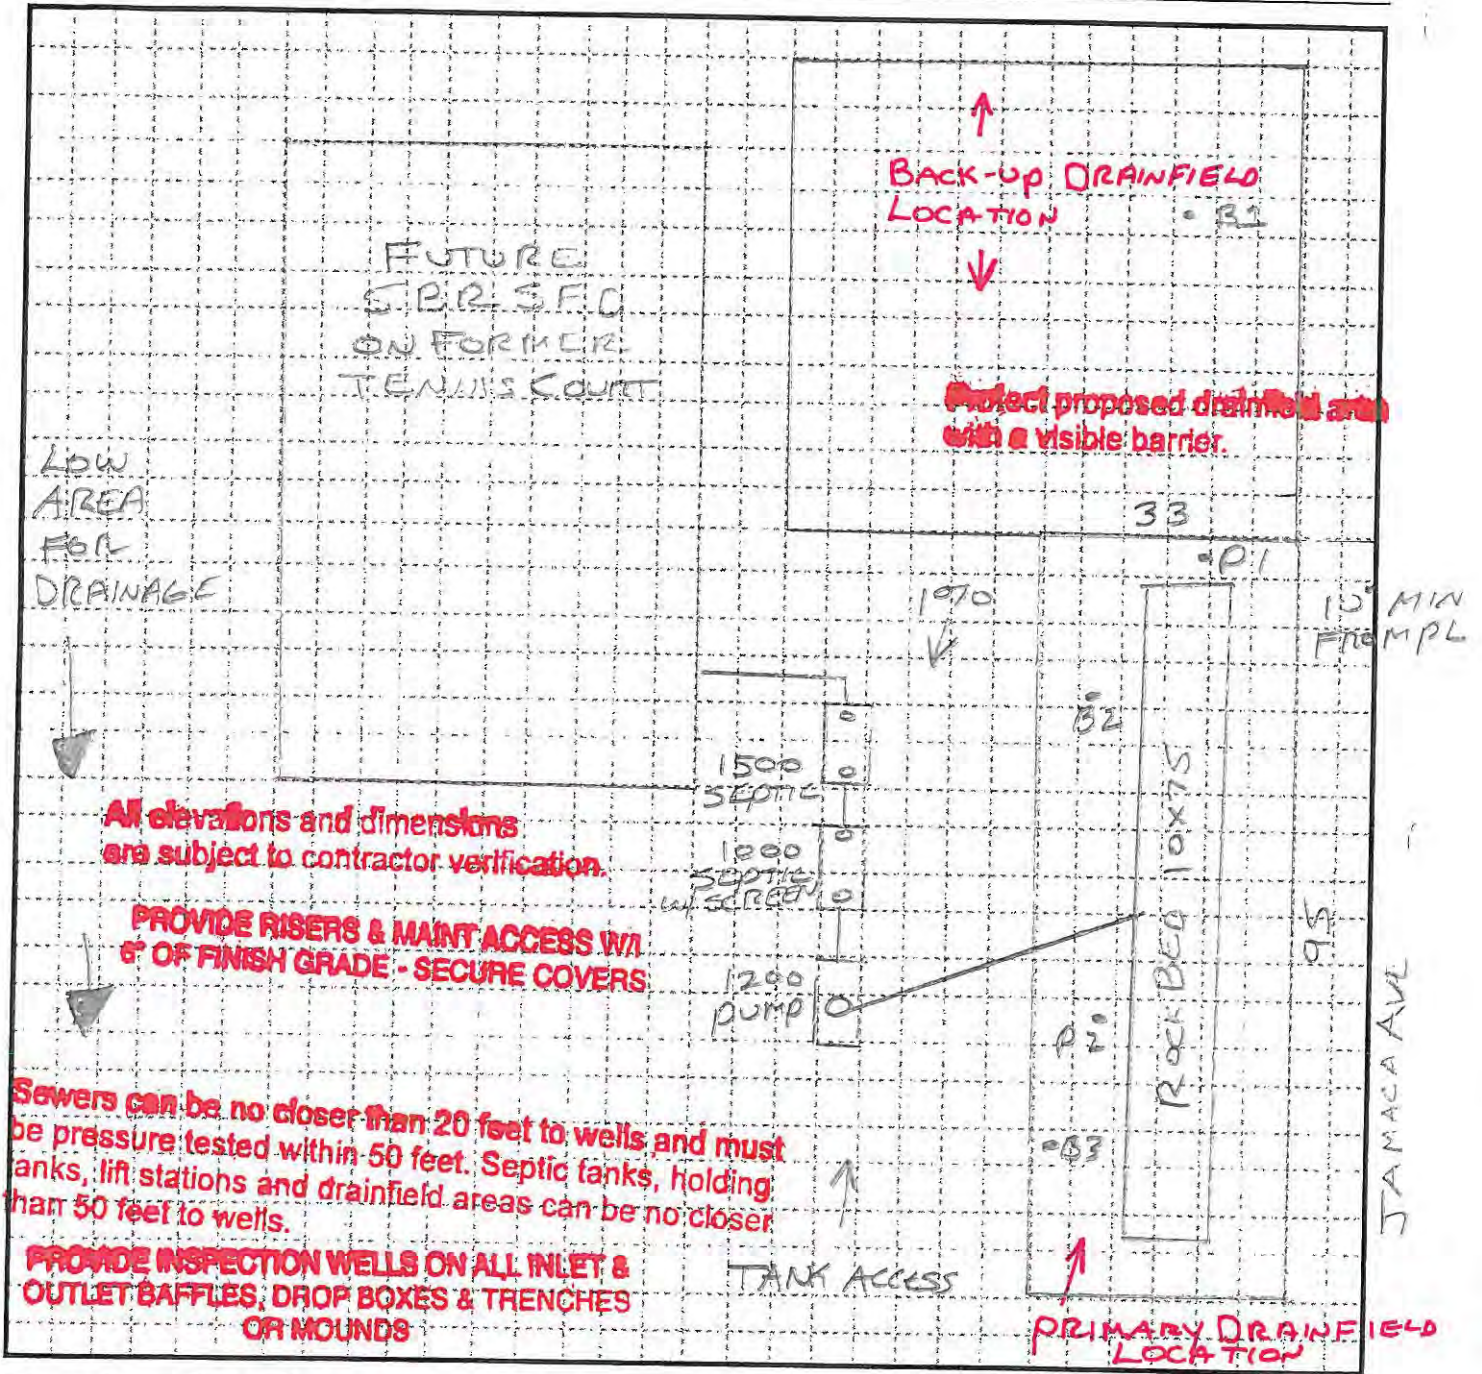 BACK-UP DRAINFIELD
LOCATION
B1
FUTURE
ON FORMER
TENNIS COURT
Protect proposed drainfield area
with a visible barrier.
LOW
AREA
FOR
DRAINAGE
33
P1
1%
10' MIN
FROM PL
B2
1500
SEPTIC
ROCK BED 10x75
95
JAMACA AVE
All elevations and dimensions
are subject to contractor verification.
1000
SEPTIC
W/ SCREEN
PROVIDE RISERS & MAINT ACCESS W/I
6" OF FINISH GRADE - SECURE COVERS
1200
PUMP
P2
B3
Sewers can be no closer than 20 feet to wells and must
be pressure tested within 50 feet. Septic tanks, holding
anks, lift stations and drainfield areas can be no closer
han 50 feet to wells.
PROVIDE INSPECTION WELLS ON ALL INLET &
OUTLET BAFFLES, DROP BOXES & TRENCHES
OR MOUNDS
TANK ACCESS
PRIMARY DRAINFIELD
LOCATION